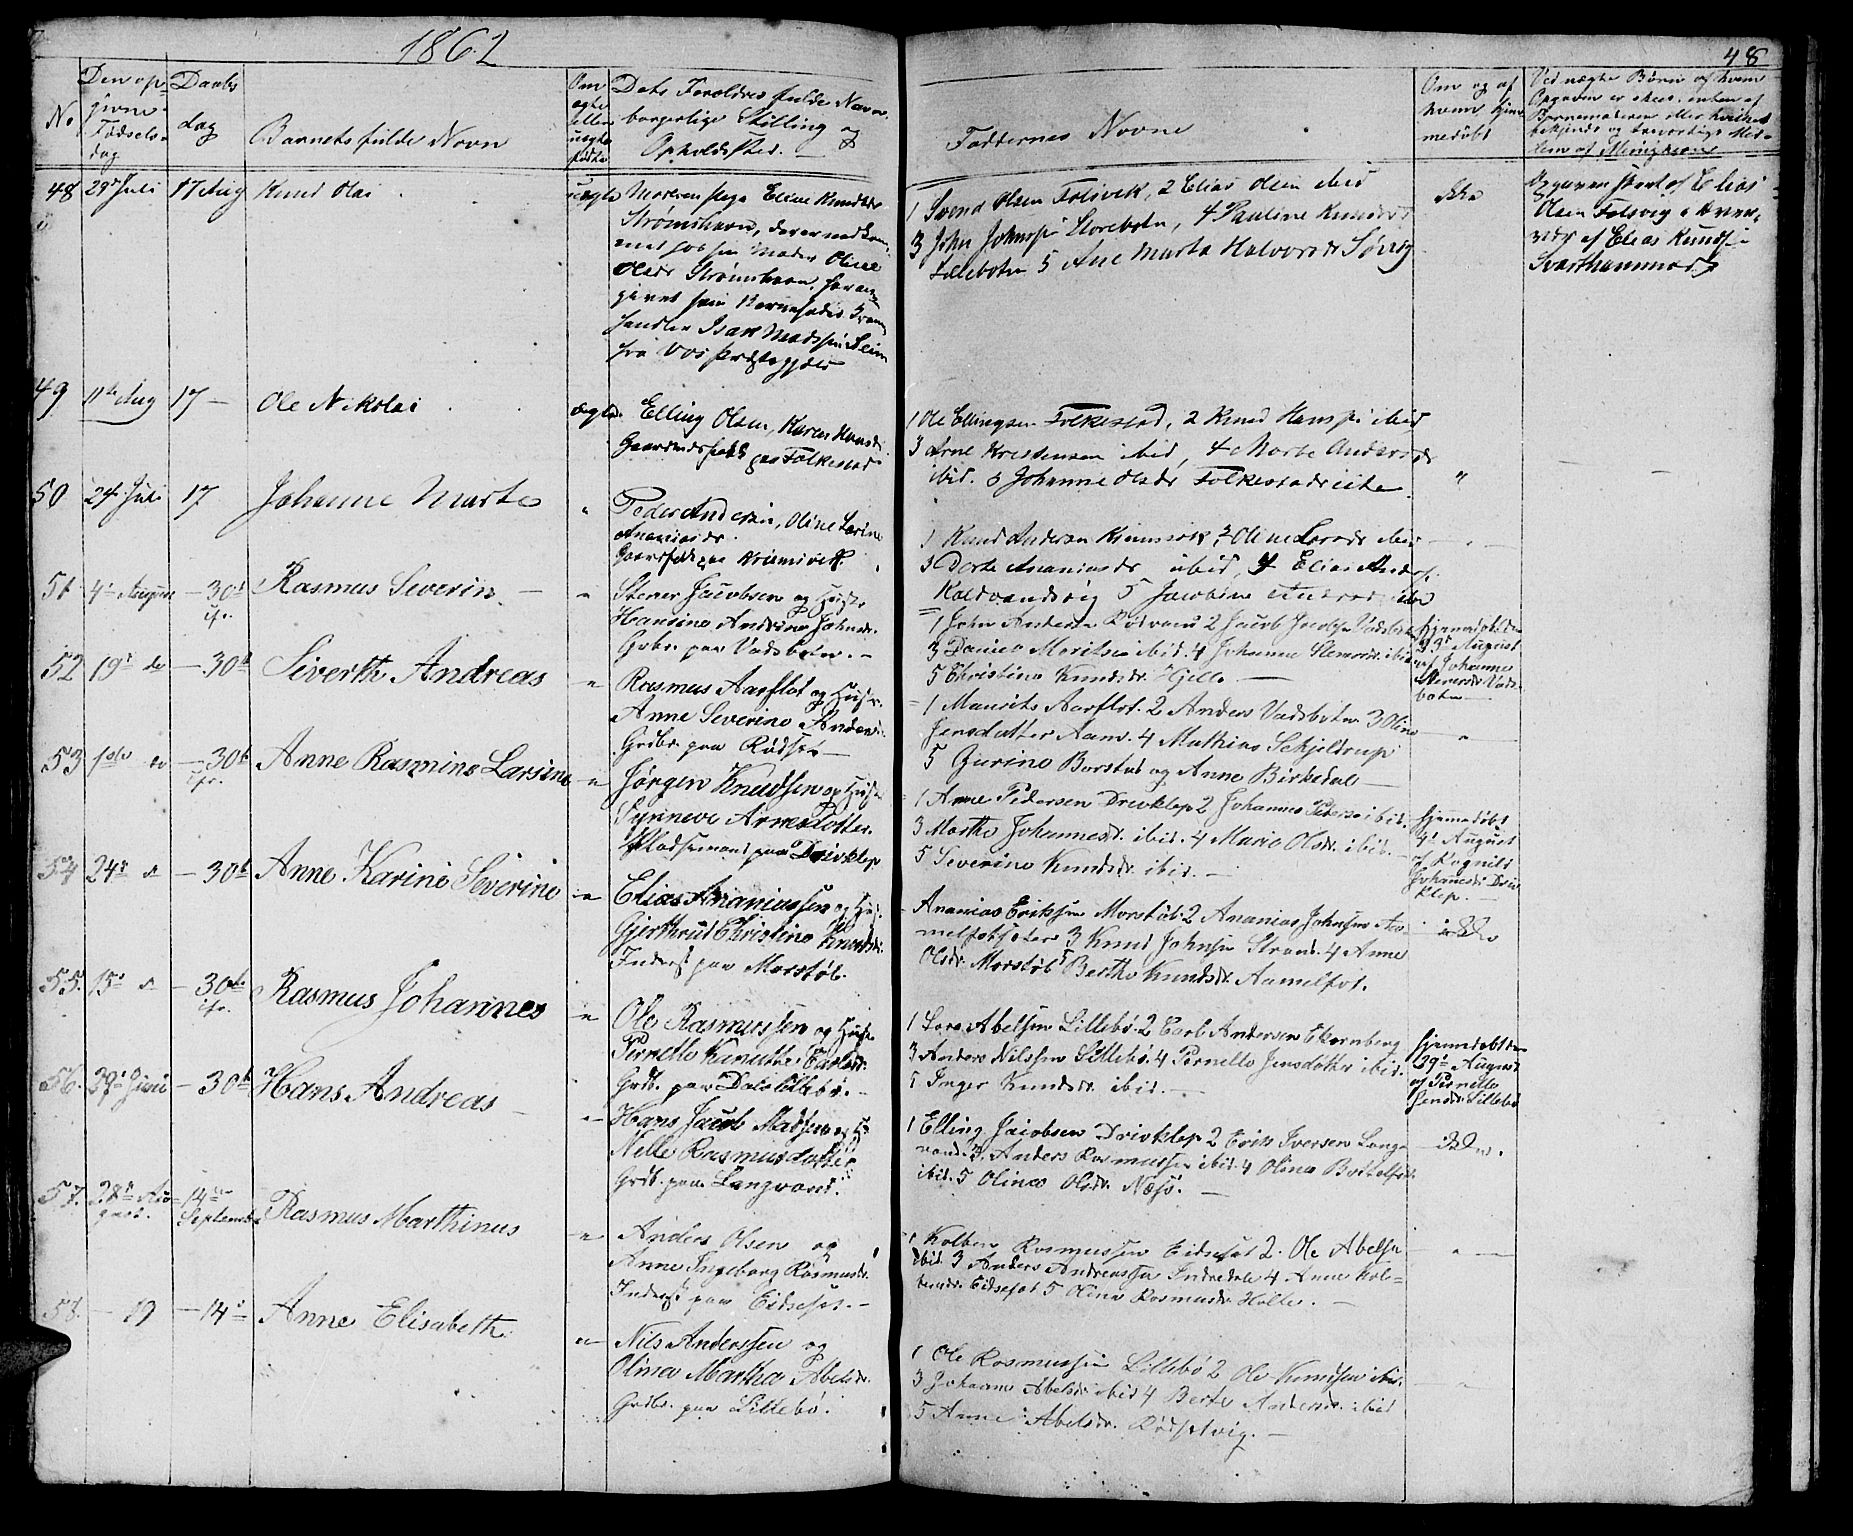 1862
48
No
Den op-
givne
Fødsels-
dag
Daabs
dag
Barnets fulde Navn
Om
ægte
eller
uægte
fødte
Dets Forældres fulde Navn
borgerlige Stilling og
Opholdssted.
Faddernes Navne
Om og af
hvem hjem-
medøbt
Ved uægte Børn af hvem
Opgaven er skeet, enten af
Barnemoderen eller hvilket
bekjendt og troværdigt Med-
lem af Menigheden
48 29de Juli 17 Aug Knud Olai
uægte
Moderen Pige Eline Knudsdr
Strømshavn, der er nedkom-
met hos sin Moder Oline
Olsdr Strømshavn, har an-
givet som Barnefader
handler Isak Madssen Seim
fra Vos Præstegjeld
1 Svend Olsen Folsvik, 2 Elias Olsen ibid
3 John Johnsen Storebotn, 4 Pauline Knudsdr
Litlebotn 5 Ane Marta Halvorsdr Sørvig
ikke
Opgaven skeet af Elias
Olsen Folsvig
af Elias Knuds
Svarthammer
49 11te Aug 17 — Ole Nikolai
ægte.
Elling Olsen, Karen Hansdr
Gaardmandsfolk paa Folkestad
1 Ole Ellingsen Folkestad, 2 Knud Hansen ibid
3 Arne Kristensen ibid, 4 Marte Andersdr
ibid. 5 Johanne Olsdr Folkestad
"
50 24 Juli 17 Johanne Marte
"
Peder Andersen, Oline Larine
Ananiasdr
Gaardfolk paa
1 Knud Andersen 2 Oline Larsdr ibid
3 Dorte Ananiasdr ibid, 4 Elias Anders.
Koldvandsvig 5 Jacobine
51 4de August — 30te Rasmus Severin
Stener Jacobsen og Hust.
Hansine Andrine Johnsdr.
Gbr. paa Vadsbotn. —
1 John Andersen Rødvand 2 Jacob Jacobsen Vadsbotn
3 Daniel Moritsen ibid. 4 Johanne Stenersdr. ibid
5 Christine Knudsdr. Hjelle —
hjemmedøbt den
23de August
af Johanne
Stenersdr. Vads-
botn
52 19de do — 30te Siverth Andreas
Rasmus Aarflot og Hustr.
Anne Severine Anders
Grdbr. paa Rødset —
1 Maurits Aarflot. 2 Anders Vadsbotn. 3 Oline
Jensdatter Aam. 4 Mathias Schjeldrup
5 Gurine Borstad og Anne Birkedal —
53 do — 30te Anne Rasmine Larsine
Jørgen Knudsen og Hust.
Syrineve Arnesdatter.
Pladsmand paa Drivklep
1 Arne Pedersen Drivklep 2 Johannes Petersen ibid.
3 Marthe Johannesdr. ibid. 4 Marie Olsdr. ibid. —
5 Severine Knudsdr. ibid. —
hjemmedøbt
4de August
af Ragnild
Johannesdr Driv-
klep. —
54 24de — 30te Anne Karine Severine
Elias Ananiassen og Hus.
Gjerthrud Christine Knudsdr.
Inderst paa Morstøl.
Ananias Eriksen Morstøl. 2 Ananias Johnsen Aa-
melfotsæter 3 Knud Johnsen Strand. 4 Anne
Olsdr. Morstøl 5 Berthe Knudsdr. Aamelfot.
55. 15de — 30te Rasmus Johannes
Ole Rasmussen og Hust.
Pernelle Knuthe Carlsdr.
Grdb. paa Dale Lillebø. —
1 Lars Abelsen Lillebø. 2 Carl Andersen Ekornberg
3 Anders Nilssen Lillebø. 4 Pernelle Jensdatter ibid.
5 Inger Knudsdr. ibid. —
hjemmedøbt den
29de August
af Pernelle
Jensdr. Lillebø
56. Juni — 30te Hans Andreas
Hans Jacob Madsen og H.
Nelle Rasmusdatter
Grdb. paa Langvand.
1 Elling Jacobsen Drivklep 2 Erik Iversen Lang-
vand 3 Anders Rasmussen ibid. 4 Olina Bottolfsdr.
ibid. 5 Olina Olsdr. Næss. —
57. 28de Au-
gust. — 14de
September Rasmus Marthinus
Anders Olsen og
Anne Ingeborg Rasmusdr.
Inderst paa Eidseset. —
1 Kolben Rasmussen Eidseset 2. Ole Abelsen
ibid. 3 Anders Andreassen Indredale 4 Anne Kol-
bensdr. Eidseset 5 Olina Rasmusdr Holte. —
58. — 19 — 14de Anne Elisabeth
Nils Anderssen og
Olina Martha Abelsdr.
Grdbr. paa Lillebø.
1 Ole Rasmussen Lillebø 2 Ole Knudsen ibid.
3 Johanne Abelsdr ibid 4 Berte Andersdr. ibid
5 Anne Abelsdr. Rødsetvig. —